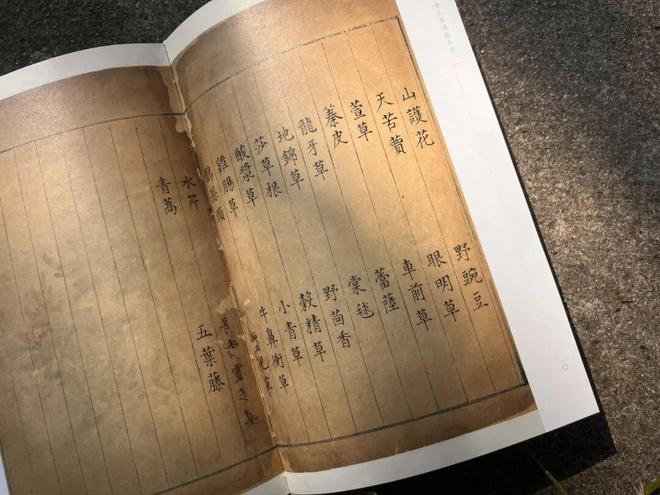 山護花 野豌豆
天苦蕒 眼明草
萱草 車前草
蓁皮
龍牙草 棠毬
地錦草 野茴香
莎草根 穀精草
酸漿草 小青草
雞腸草 牛鼻衝草
水芹
青蒿 五葉藤